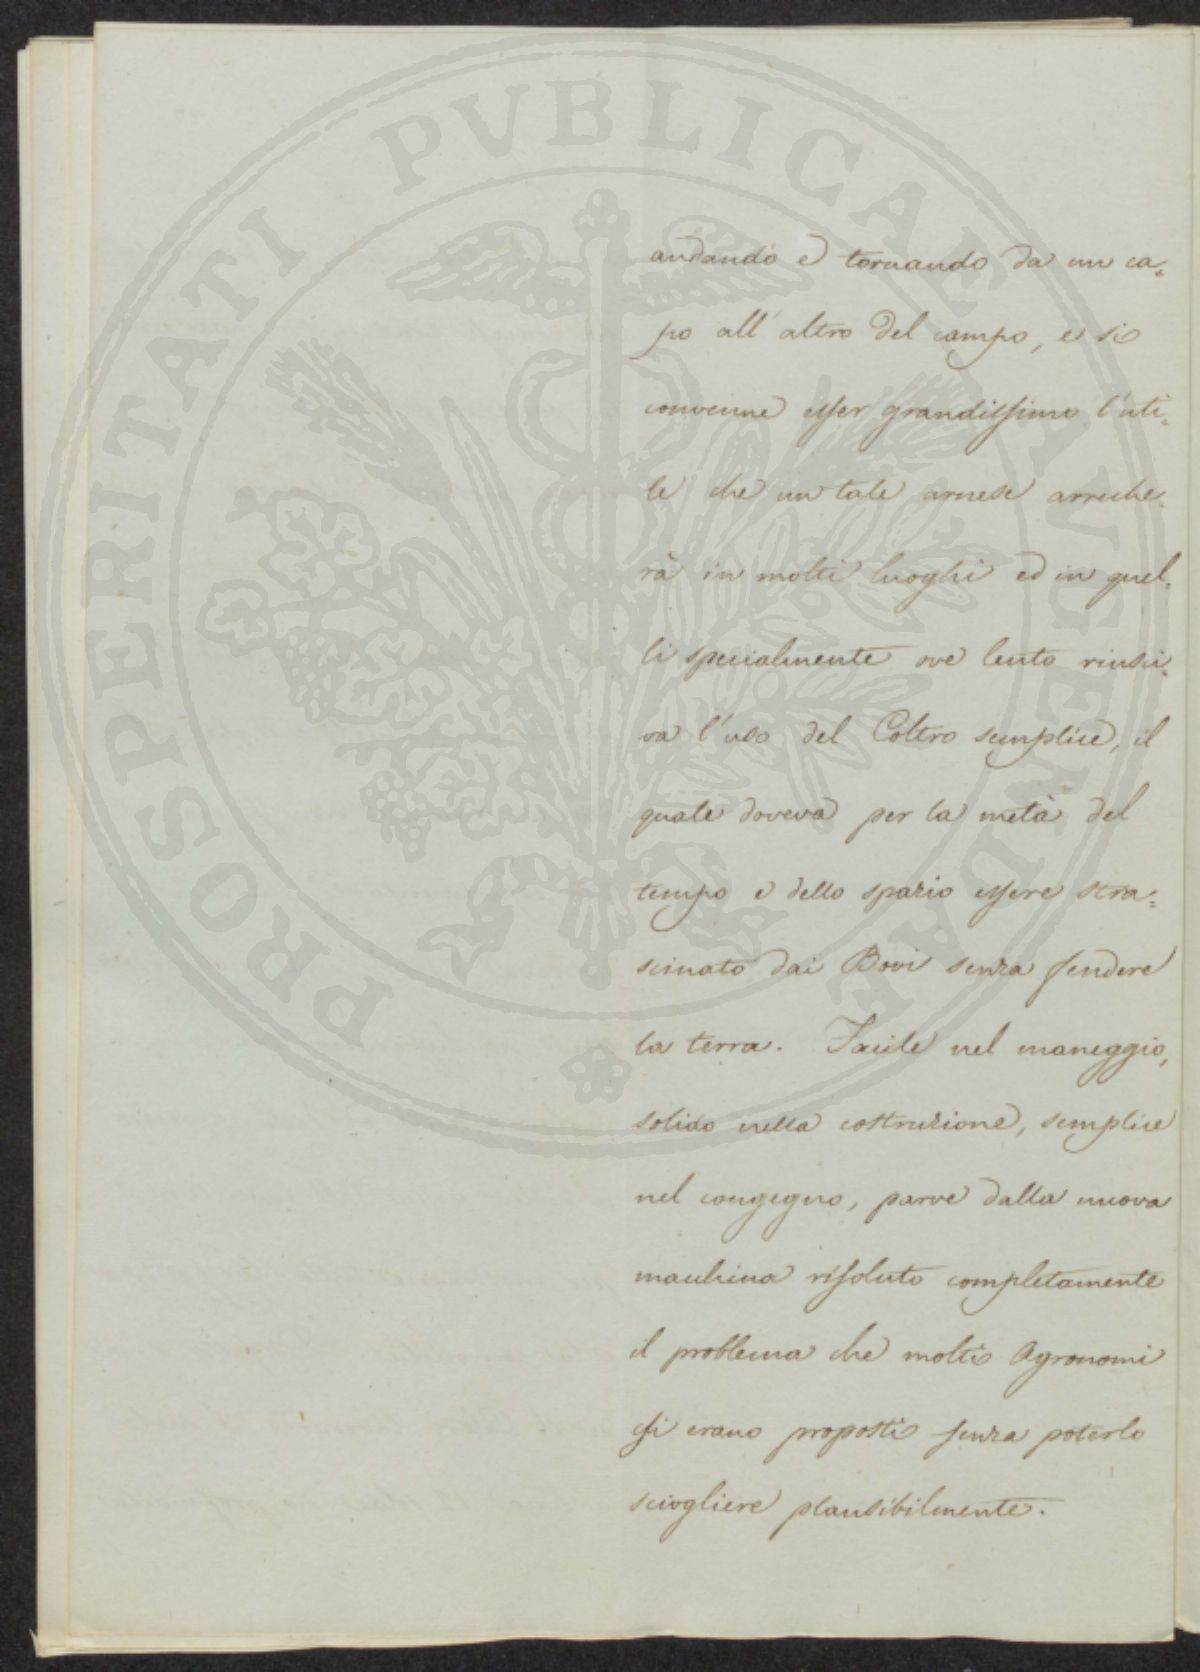 PROSPERITATI PVBLICAE AVGENDAE
andando e tornando da un ca=
po all' altro del campo, e si
convenne esser grandissimo l'uti=
le che un tale arnese arreche=
rà in molti luoghi ed in quel=
li specialmente ove lento riusci=
va l'uso del Coltro semplice, il
quale doveva per la metà del
tempo e dello spazio essere stra=
scinato dai Bovi senza fendere
la terra. Facile nel maneggio,
solido nella costruzione, semplice
nel congegno, parve dalla nuova
macchina risoluto completamente
il problema che molti Agronomi
si erano proposti senza poterlo
sciogliere plausibilmente.